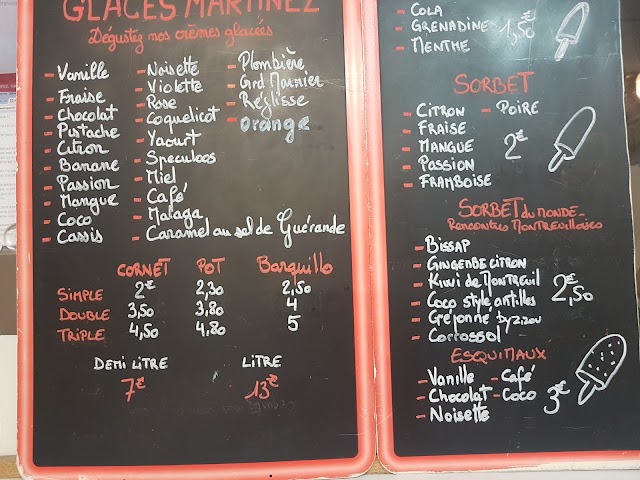 GLACES MARTINEZ
Dégustez nos crèmes glacées
- Vanille
- Fraise
- Chocolat
- Pistache
- Citron
- Banane
- Passion
- Mangue
- Coco
- Cassis
- Noisette
- Violette
- Rose
- Coquelicot
- Yaourt
- Speculoos
- Miel
- Café
- Malaga
- Caramel au sel de Guérande
- Plombière
- Grd Marnier
- Réglisse
- Orange
CORNET POT Barquillo
SIMPLE 2€ 2,30 2,50
DOUBLE 3,50 3,80 4
TRIPLE 4,50 4,80 5
DEMI LITRE LITRE
7€ 13€
- COLA
- GRENADINE 1,50€
- MENTHE
SORBET
- CITRON - POIRE
- FRAISE
- MANGUE 2€
- PASSION
- FRAMBOISE
SORBET du MONDE-
Rencontres Montreuilloises
- BISSAP
- GINGEMBE CITRON
- Kiwi de MONTREUIL 2€,50
- Coco style antilles
- Créponné By Zizou
- Corossol
ESQUIMAUX
- Vanille - Café
- Chocolat - Coco 3€
- Noisette